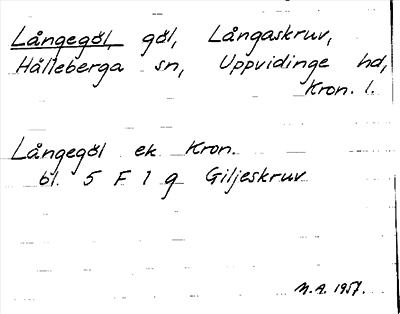 Långegöl, göl, Långaskruv,
Hälleberga sn, Uppvidinge hd,
Kron. l.
Långegöl ek Kron.
bl. 5 F 1 g Giljeskruv
M.A. 1957.